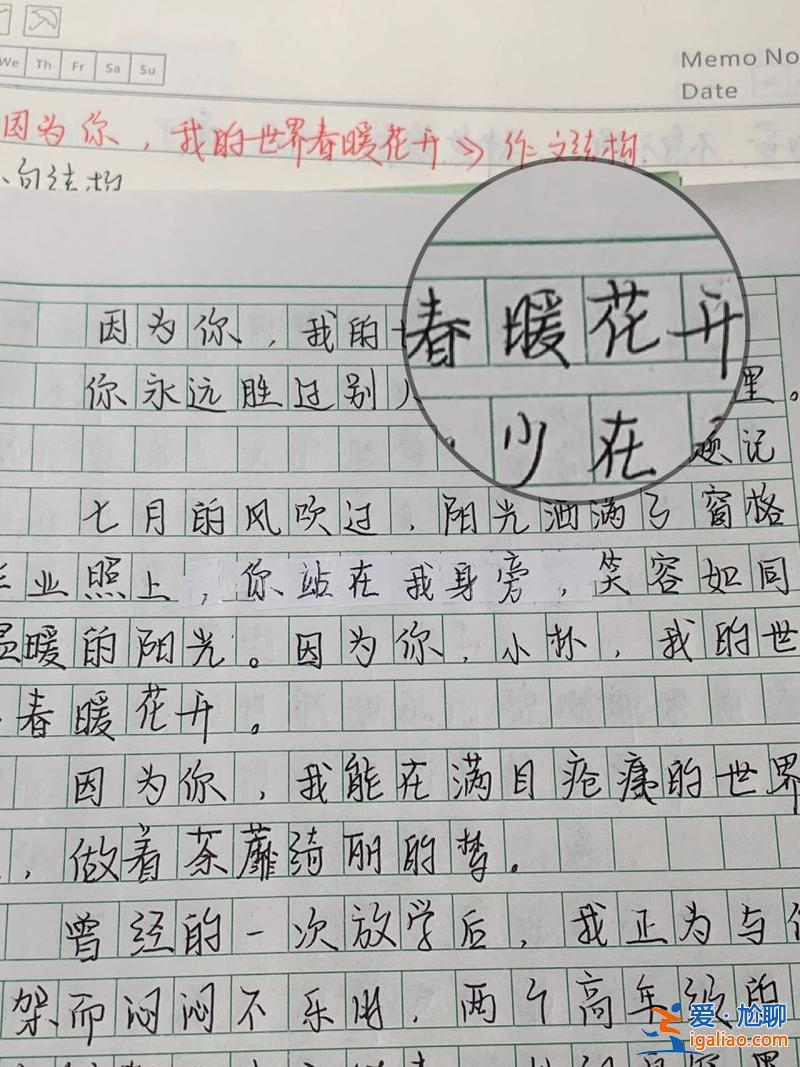 We Th Fr Sa Su
Memo No
Date
因为你，我的世界春暖花开⇒作文结构
向结构
因为你，我的
春暖花开
你永远胜过别
里。
少在
题记
七月的风吹过，阳光洒满了窗格
业照上，你站在我身旁，笑容如同
温暖的阳光。因为你，小朴，我的世
春暖花开。
因为你，我能在满目疮痍的世界
，做着荼蘼绮丽的梦。
曾经的一次放学后，我正为与
架而闷闷不乐时，两个高年级的
爱·尬聊
igaliao.com